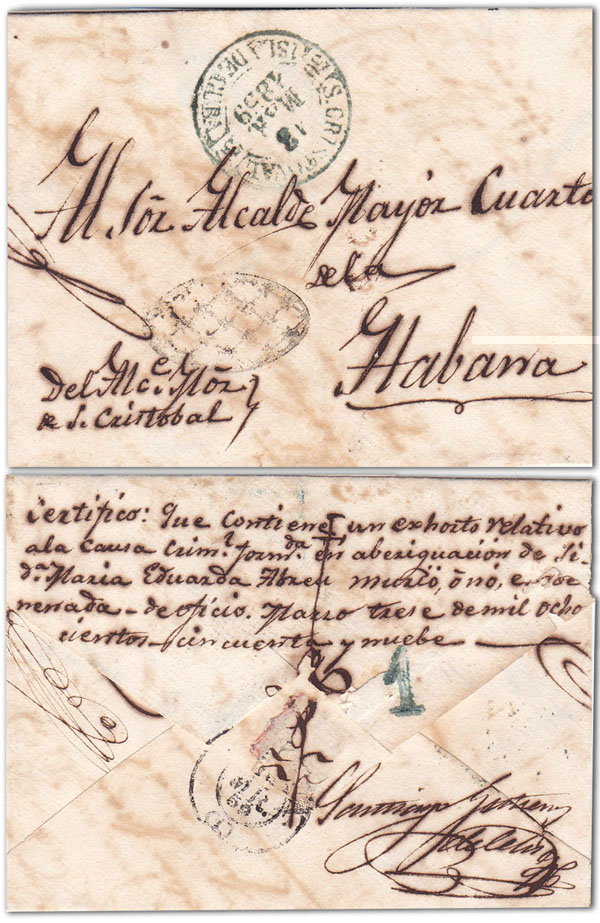 S. CRISTOBAL ISLA DE CUBA
13
MAR
1859
Al Sōr Alcalde Mayór Cuarto
de la
Habana
Del Alce. Mōr
de S. Cristobal
Certifico: Que contiene un exhorto relativo
ala Causa Criml. formda. en aberiguación de si
da. Maria Eduarda Abreu murió, ō nó, enve
nenada - de oficio. Marzo trese de mil ocho
cientos - cincuenta y nuebe
1
Santiago